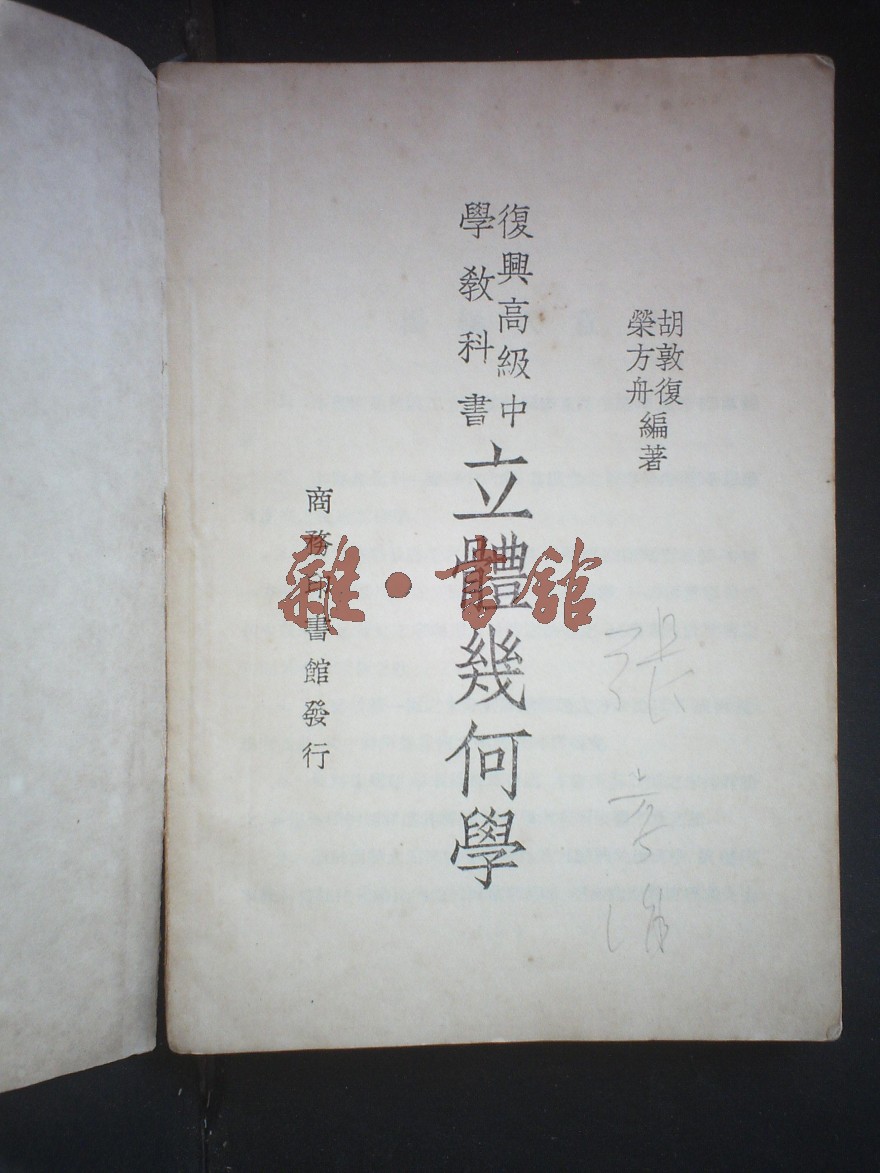 胡敦復
榮方舟
編著
復興高級中
學教科書
立體幾何學
商務印書館發行
雜·書館
張